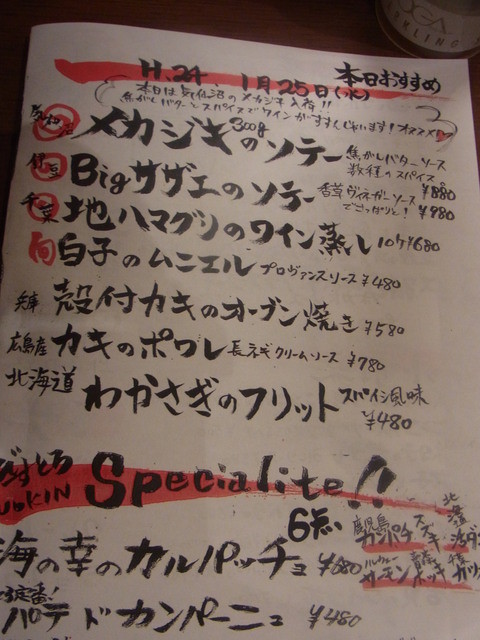 H.24 1月25日(水) 本日おすすめ
本日は気仙沼のメカジキ入荷!!
焦がしバターとスパイスでワインがすすんじゃいます!オススメ
気仙沼 メカジキのソテー 300g 焦がしバターソース 数種のスパイス ¥880
Bigサザエのソテー 香草ヴィネガーソースでさっぱりと! ¥980
千葉 地ハマグリのワイン蒸し 10ケ¥680
白子のムニエル プロヴァンスソース ¥480
兵庫 殻付カキのオーブン焼き ¥580
広島産 カキのポワレ 長ネギクリームソース ¥780
北海道 わかさぎのフリット スパイシー風味 ¥480
Specialite!!
6点
海の幸のカルパッチョ ¥680
鹿児島 カンパチ
サーモン
パテドカンパーニュ ¥480